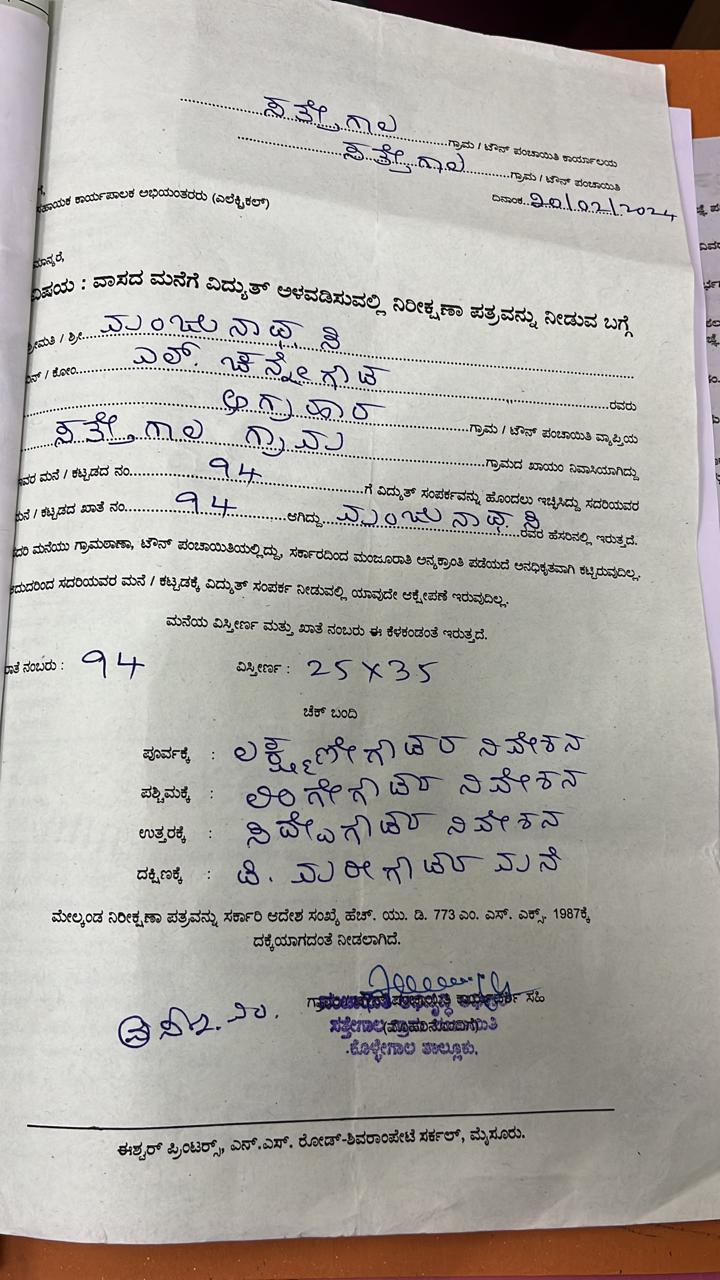 ಸತ್ತೇಗಾಲ ಗ್ರಾಮ / ಟೌನ್ ಪಂಚಾಯಿತಿ ಕಾರ್ಯಾಲಯ
ಸತ್ತೇಗಾಲ ಗ್ರಾಮ / ಟೌನ್ ಪಂಚಾಯಿತಿ
ದಿನಾಂಕ 20/02/2024
ಸಹಾಯಕ ಕಾರ್ಯಪಾಲಕ ಅಭಿಯಂತರರು (ಎಲೆಕ್ಟ್ರಿಕಲ್)
ಮಾನ್ಯರೆ,
ವಿಷಯ : ವಾಸದ ಮನೆಗೆ ವಿದ್ಯುತ್ ಅಳವಡಿಸುವಲ್ಲಿ ನಿರೀಕ್ಷಣಾ ಪತ್ರವನ್ನು ನೀಡುವ ಬಗ್ಗೆ
ಶ್ರೀಮತಿ / ಶ್ರೀ. ಮಂಜುನಾಥ. ಸಿ
ಬಿನ್ / ಕೋಂ. ಎಲ್. ಚನ್ನೇಗೌಡ ರವರು
ಅಗ್ರಹಾರ ಗ್ರಾಮ / ಟೌನ್ ಪಂಚಾಯಿತಿ ವ್ಯಾಪ್ತಿಯ
ಸತ್ತೇಗಾಲ ಗ್ರಾಮ ಗ್ರಾಮದ ಖಾಯಂ ನಿವಾಸಿಯಾಗಿದ್ದು
ಇವರ ಮನೆ / ಕಟ್ಟಡದ ನಂ. 94 ಗೆ ವಿದ್ಯುತ್ ಸಂಪರ್ಕವನ್ನು ಹೊಂದಲು ಇಚ್ಛಿಸಿದ್ದು ಸದರಿಯವರ
ಮನೆ / ಕಟ್ಟಡದ ಖಾತೆ ನಂ. 94 ಆಗಿದ್ದು ಮಂಜುನಾಥ. ಸಿ ರವರ ಹೆಸರಿನಲ್ಲಿ ಇರುತ್ತದೆ.
ಸದರಿ ಮನೆಯು ಗ್ರಾಮಠಾಣಾ, ಟೌನ್ ಪಂಚಾಯಿತಿಯಲ್ಲಿದ್ದು, ಸರ್ಕಾರದಿಂದ ಮಂಜೂರಾತಿ ಅನ್ಯಕ್ರಾಂತಿ ಪಡೆಯದೆ ಅನಧಿಕೃತವಾಗಿ ಕಟ್ಟಿರುವುದಿಲ್ಲ.
ಆದುದರಿಂದ ಸದರಿಯವರ ಮನೆ / ಕಟ್ಟಡಕ್ಕೆ ವಿದ್ಯುತ್ ಸಂಪರ್ಕ ನೀಡುವಲ್ಲಿ ಯಾವುದೇ ಆಕ್ಷೇಪಣೆ ಇರುವುದಿಲ್ಲ.
ಮನೆಯ ವಿಸ್ತೀರ್ಣ ಮತ್ತು ಖಾತೆ ನಂಬರು ಈ ಕೆಳಕಂಡಂತೆ ಇರುತ್ತದೆ.
ಖಾತೆ ನಂಬರು : 94 ವಿಸ್ತೀರ್ಣ : 25 X 35
ಚೆಕ್ ಬಂದಿ
ಪೂರ್ವಕ್ಕೆ : ಲಕ್ಷ್ಮಣೇಗೌಡರ ನಿವೇಶನ
ಪಶ್ಚಿಮಕ್ಕೆ : ಲಿಂಗೇಗೌಡರ ನಿವೇಶನ
ಉತ್ತರಕ್ಕೆ : ಸಿದ್ದೇಗೌಡರ ನಿವೇಶನ
ದಕ್ಷಿಣಕ್ಕೆ : ಡಿ. ಮರೀಗೌಡರ ಮನೆ
ಮೇಲ್ಕಂಡ ನಿರೀಕ್ಷಣಾ ಪತ್ರವನ್ನು ಸರ್ಕಾರಿ ಆದೇಶ ಸಂಖ್ಯೆ ಹೆಚ್. ಯು. ಡಿ. 773 ಎಂ. ಎಸ್. ಎಕ್ಸ್. 1987ಕ್ಕೆ
ದಕ್ಕೆಯಾಗದಂತೆ ನೀಡಲಾಗಿದೆ.
ಸಹಿ
ಸತ್ತೇಗಾಲ (ಮೊಹರಿನೊಂದಿಗೆ)
ಕೊಳ್ಳೇಗಾಲ ತಾಲ್ಲೂಕು.
ಈಶ್ವರ್ ಪ್ರಿಂಟರ್‍ಸ್, ಎನ್.ಎಸ್. ರೋಡ್-ಶಿವರಾಂಪೇಟೆ ಸರ್ಕಲ್, ಮೈಸೂರು.